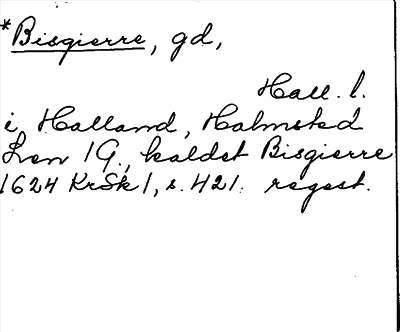 *Bisgierre, gd,
Hall. l.
i Halland, Halmsted
Len 1 G., kaldet Bisgierre
1624 KrSk 1, s. 421. regest.